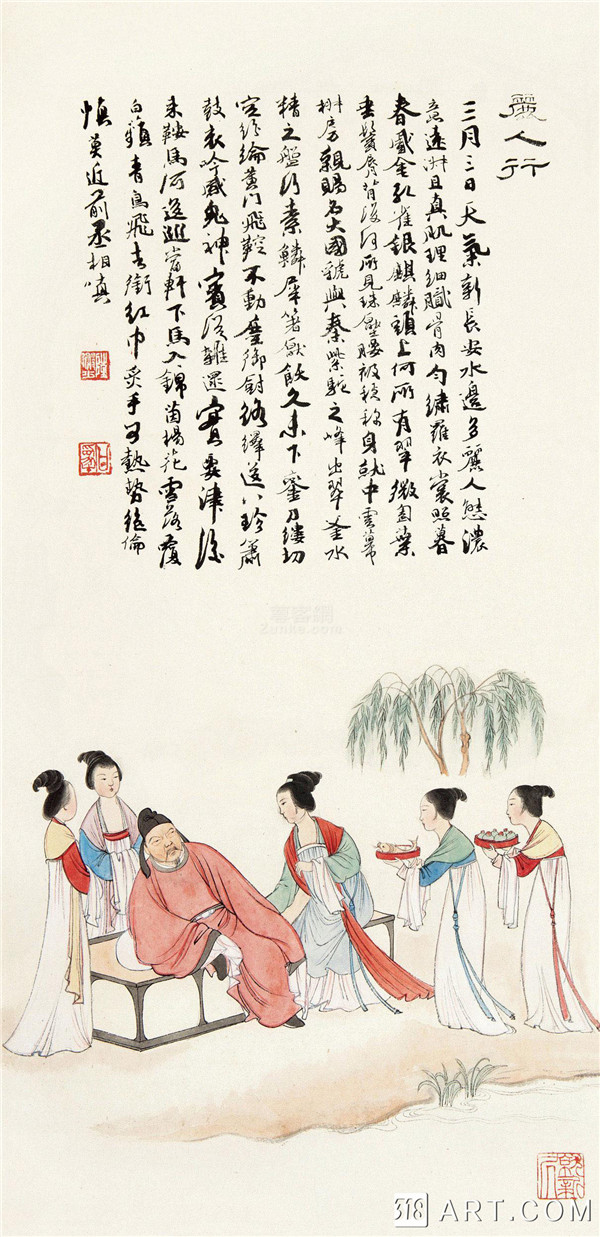 麗人行
三月三日天氣新長安水邊多麗人態濃
意遠淑且真肌理細膩骨肉勻繡羅衣裳照暮
春蹙金孔雀銀麒麟頭上何所有翠微葉
垂鬢唇背後何所見珠壓腰衱穩稱身就中雲幕
椒房親賜名大國虢與秦紫駝之峰出翠釜水
精之盤行素鱗犀箸厭飫久未下鑾刀縷切
空紛綸黃門飛鞚不動塵御厨絡繹送八珍簫
鼓哀吟感鬼神賓從雜遝實要津後
來鞍馬何逡巡當軒下馬入錦茵楊花雪落覆
白蘋青鳥飛去銜紅巾炙手可熱勢絕倫
慎莫近前丞相嗔
318 ART.COM